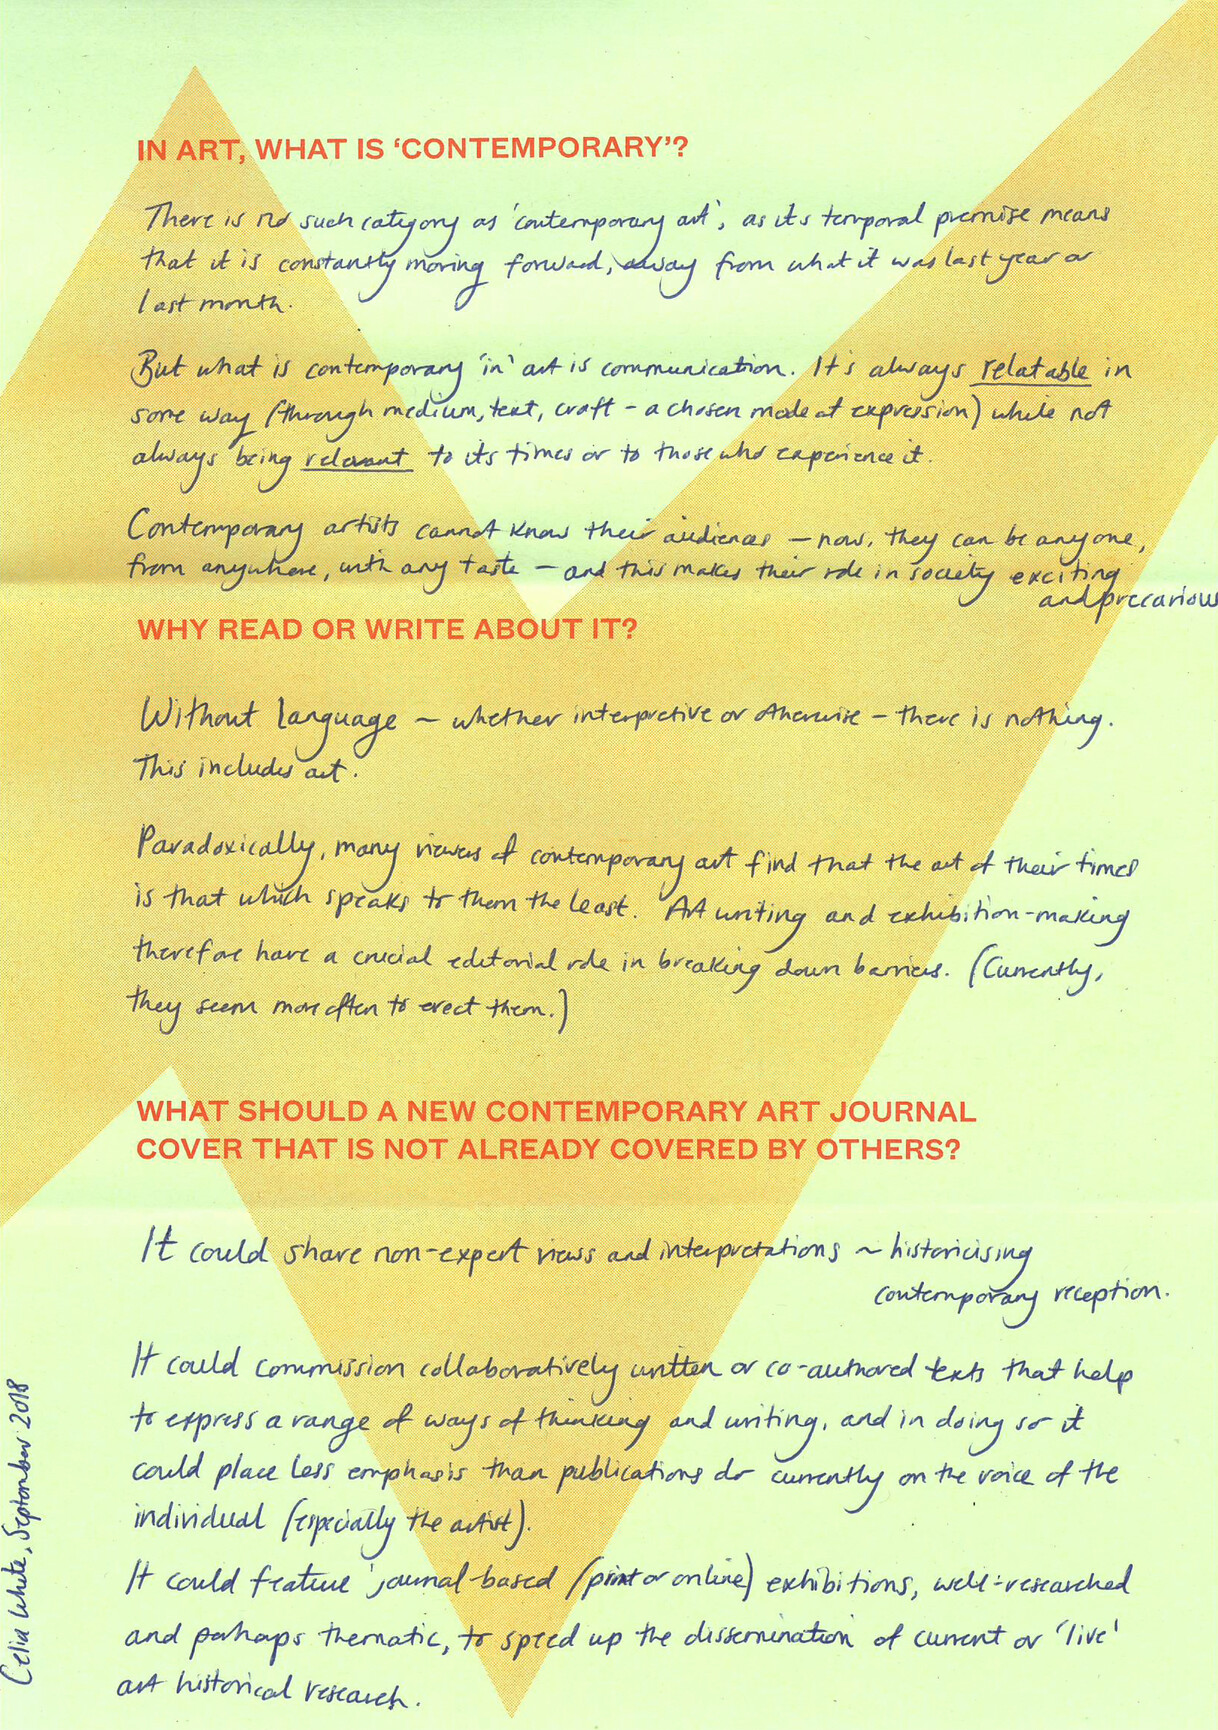 IN ART, WHAT IS ‘CONTEMPORARY’?
There is no such category as 'contemporary art', as its temporal premise means
that it is constantly moving forward, away from what it was last year or
last month.
But what is contemporary 'in' art is communication. It's always relatable in
some way (through medium, text, craft – a chosen mode of expression) while not
always being relevant to its times or to those who experience it.
Contemporary artists cannot know their audiences – now, they can be anyone,
from anywhere, with any taste – and this makes their role in society exciting
and precarious
WHY READ OR WRITE ABOUT IT?
Without language – whether interpretive or otherwise – there is nothing.
This includes art.
Paradoxically, many viewers of contemporary art find that the art of their times
is that which speaks to them the least. Art writing and exhibition-making
therefore have a crucial editorial role in breaking down barriers. (Currently,
they seem more often to erect them.)
WHAT SHOULD A NEW CONTEMPORARY ART JOURNAL
COVER THAT IS NOT ALREADY COVERED BY OTHERS?
It could share non-expert views and interpretations – historicising
contemporary reception.
It could commission collaboratively written or co-authored texts that help
to express a range of ways of thinking and writing, and in doing so it
could place less emphasis than publications do currently on the voice of the
individual (especially the artist).
It could feature journal-based (print or online) exhibitions, well-researched
and perhaps thematic, to speed up the dissemination of current or 'live'
art historical research.
Celia White, September 2018